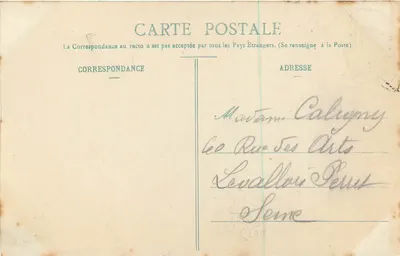 CARTE POSTALE
La Correspondance au recto n'est pas acceptée par tous les Pays Étrangers. (Se renseigner à la Poste)
CORRESPONDANCE
ADRESSE
Madame Caligny
60 Rue des Arts
Levallois Perret
Seine